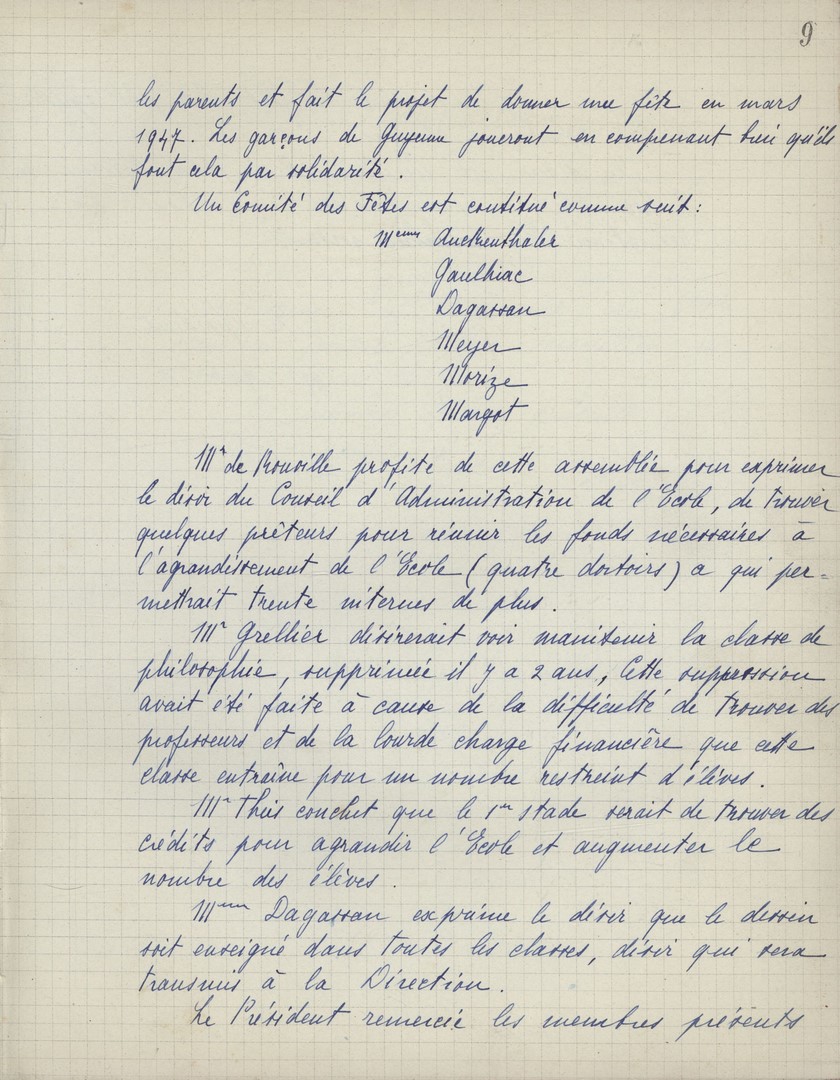 9
les parents et fait le projet de donner une fête en mars
1947. Les garçons de Guyenne joueront en comprenant bien qu'ils
font cela par solidarité.
Un Comité des Fêtes est constitué comme suit :
Mmes Auckenthaler
Gaulhiac
Dagassan
Meyer
Morize
Margot
Mr de Rouville profite de cette assemblée pour exprimer
le désir du Conseil d'Administration de l'École, de trouver
quelques prêteurs pour réunir les fonds nécessaires à
l'agrandissement de l'École (quatre dortoirs) a qui per=
mettrait trente internes de plus.
Mr Grellier désirerait voir maintenir la classe de
philosophie, supprimée il y a 2 ans, Cette suppression
avait été faite à cause de la difficulté de trouver des
professeurs et de la lourde charge financière que cette
classe entraîne pour un nombre restreint d'élèves.
Mr Theis conclut que le 1er stade serait de trouver des
crédits pour agrandir l'École et augmenter le
nombre des élèves.
Mme Dagassan exprime le désir que le dessin
soit enseigné dans toutes les classes, désir qui sera
transmis à la Direction.
Le Président remercie les membres présents